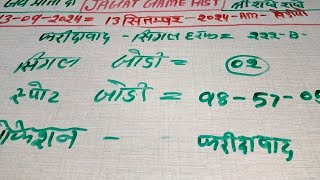 जय माता दी JAGAT GAME HIST जी राधे राधे
13-09-2024 = 13 सितम्बर - 2024 - AM -
फरीदाबाद - सिंगल हरूफ = 222-B-
सिंगल जोडी = 02
स्पोट जोडी = 98-57-05
लोकेशन - - फरीदाबाद